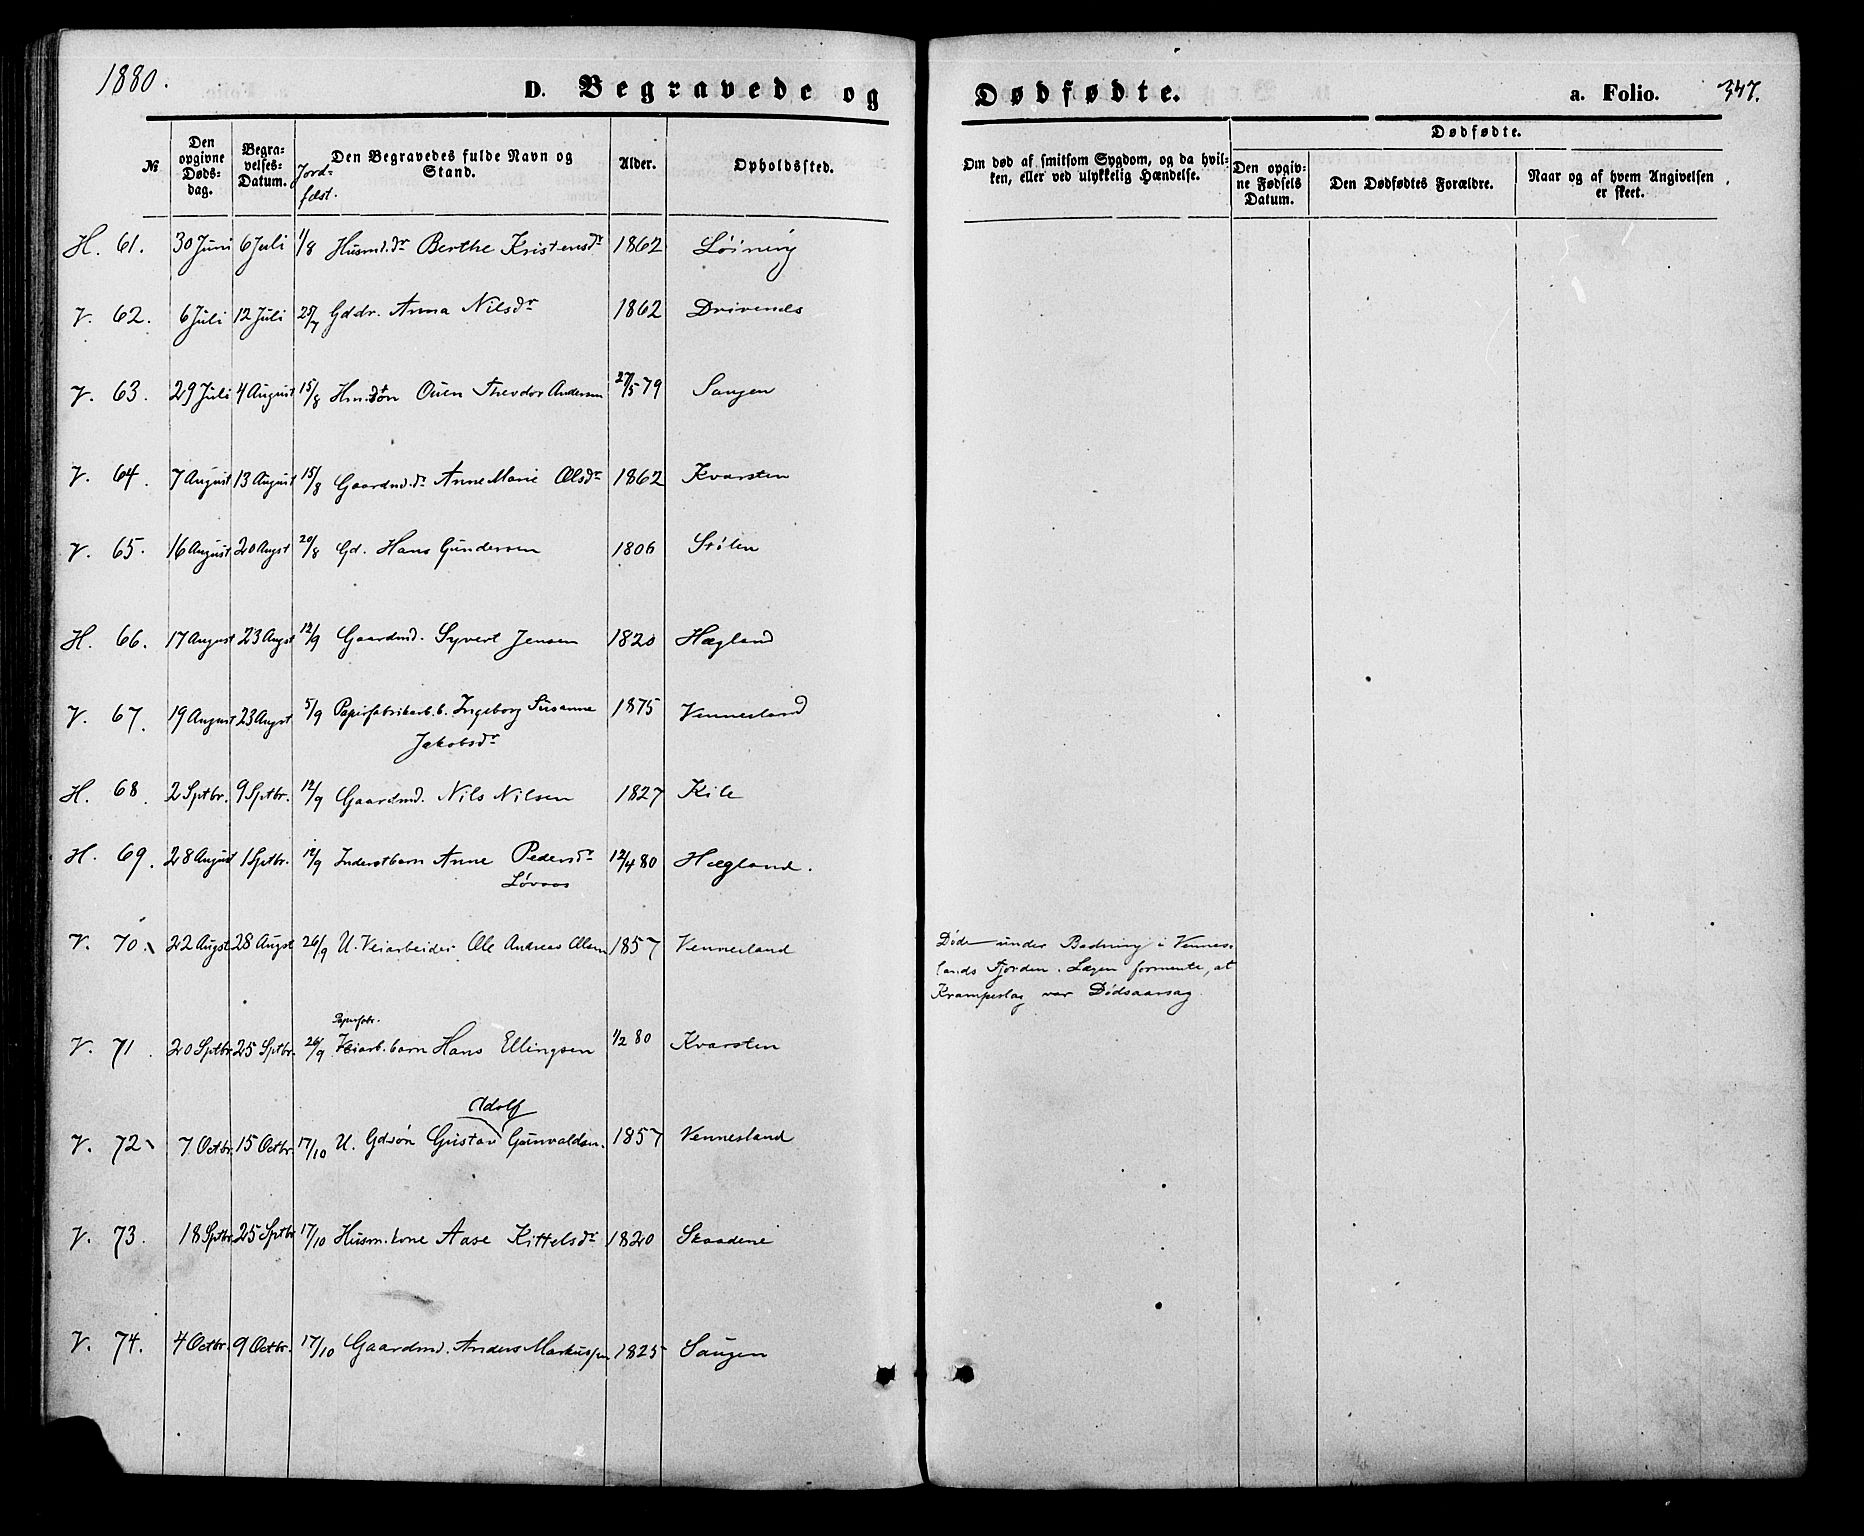 1880.
D. Begravede og Dødfødte. a. Folio. 347.
№
Den opgivne Dødsdag.
Begravelses-Datum.
Jordfæst.
Den Begravedes fulde Navn og Stand.
Alder.
Opholdssted.
Om død af smitsom Sygdom, og da hvilken, eller ved ulykkelig Hændelse.
Dødfødte.
Den opgivne Fødsels Datum.
Den Dødfødtes Forældre.
Naar og af hvem Angivelsen er skeet.
H. 61. 30 Juni 6 Juli 1/8 Husmd.dr Berthe Kristensdr 1862 Løining
V. 62. 6 Juli 12 Juli 25/7 Gddr. Anna Nilsdr 1862 Drivenes
V. 63. 29 Juli 4 August 15/8 Hm.søn Ouen Theodor Andersen 27/5 79 Saugen
V. 64. 7 August 13 August 15/8 Gaardmd.dr Anne Marie Olsdr 1862 Kvarsten
V. 65. 16 August 20 Augst 20/8 Gd. Hans Gundersen 1806 Stølen
H. 66. 17 August 23 Augst 12/9 Gaardmd. Syvert Jensen 1820 Hægland
V. 67. 19 August 23 Augst 5/9 Papirfabrikarb.b. Ingeborg Susanne 1875 Vennesland
Jakobsdr
H. 68. 2 Sptbr. 9 Sptbr. 12/9 Gaardmd. Nils Nilsen 1827 Kile
H. 69. 28 August 1 Sptbr. 12/9 Inderstbarn Anne Pedersdr 12/4 80 Hægland.
Løvaas
V. 70. 22 Augst 28 Augst 26/9 U. Veiarbeider Ole Andreas Olsen 1857 Vennesland Døde under Badning i Vennes-
lands Fjorden. Lægen formente, at
Krampeslag var Dødsaarsag.
Papirfabr.
V. 71. 20 Sptbr. 25 Sptbr. 26/9 Veiarb.barn Hans Ellingsen 1/2 80 Kvarsten
Adolf
V. 72. 7 Octbr. 15 Octbr. 17/10 U. Gdsøn Gustav Gunvaldsen. 1857 Vennesland
V. 73. 18 Sptbr. 25 Sptbr. 17/10 Husm.kone Aase Kittelsdr 1820 Skaadene
V. 74. 4 Octbr. 9 Octbr. 17/10 Gaardmd. Anders Markussen 1825 Saugen